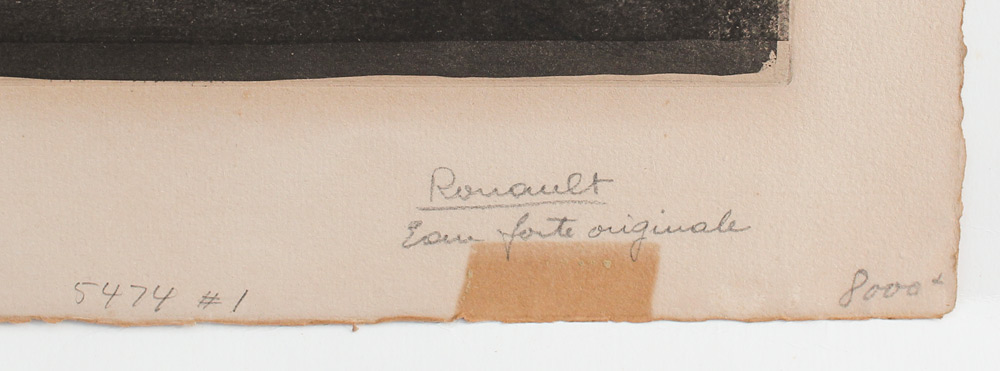 Rouault
Eau forte originale
5474 #1
8000